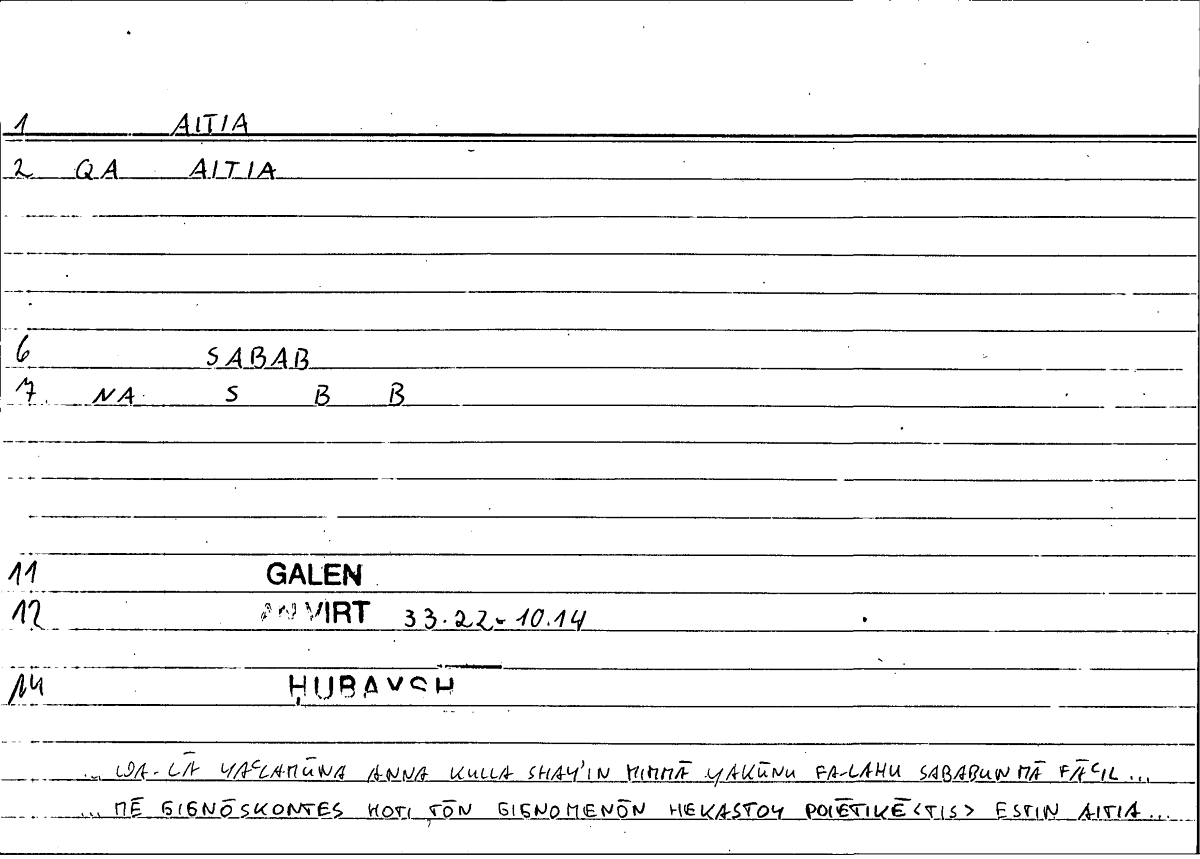 1 AITIA
2 QA AITIA
6 SABAB
7 NA S B B
11 GALEN
12 AN VIRT 33.22-10.14
14 ḤUBAYSH
... WA-LĀ YAʿLAMŪNA ANNA KULLA SHAY'IN MIMMĀ YAKŪNU FA-LAHU SABABUN MĀ FĀʿIL ...
... MĒ GIGNŌSKONTES HOTI TŌN GIGNOMENŌN HEKASTOY POIĒTIKĒ <TIS> ESTIN AITIA ...